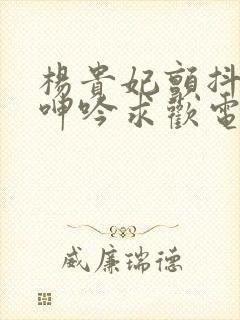 楊貴妃顫抖
呻吟求歡電
威廉瑞德